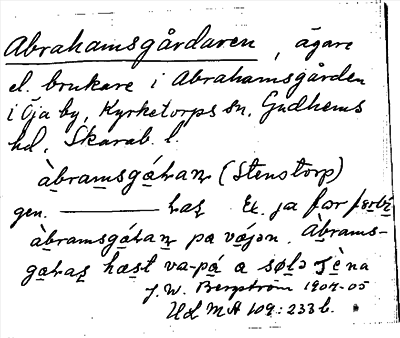 Abrahamsgårdaren, ägare
el. brukare i Abrahamsgården
i Öja by, Kyrketorps sn, Gudhems
hd, Skarab. l.
àbramsgáɫaɳ (Stenstorp)
gen. ——— ɫaʂ Ex. ja fɔr fɛrbi
àbramsgáɫaɳ pa vájən. Àbrams-
gáɫaʂ hæst va-på a søɫə
J. W. Bergström 1904-05
ULMA 109:233 b.